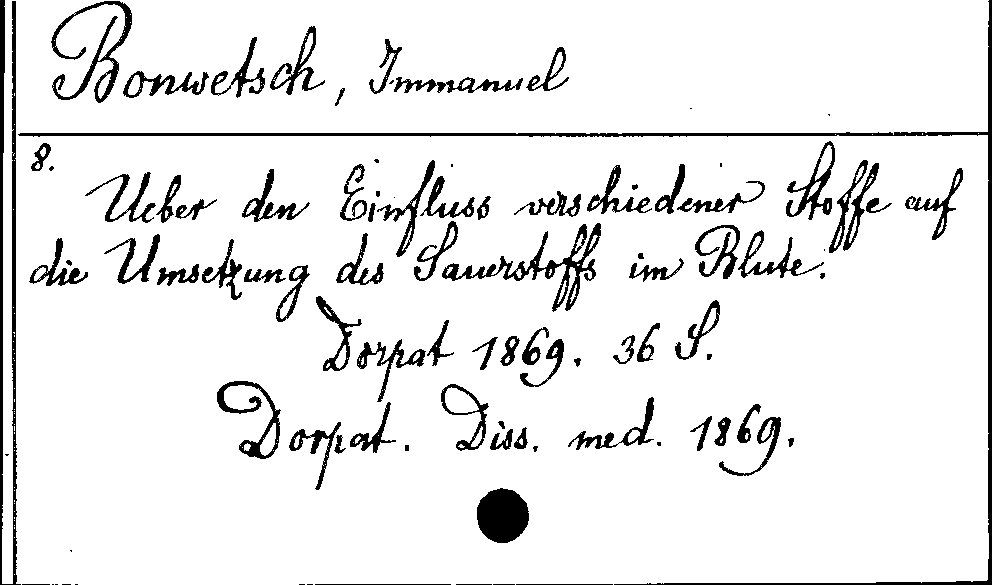 Bonwetsch, Immanuel
8.
Ueber den Einfluss verschiedener Stoffe auf
die Umsetzung des Sauerstoffs im Blute.
Dorpat 1869. 36 S.
Dorpat. Diss. med. 1869.